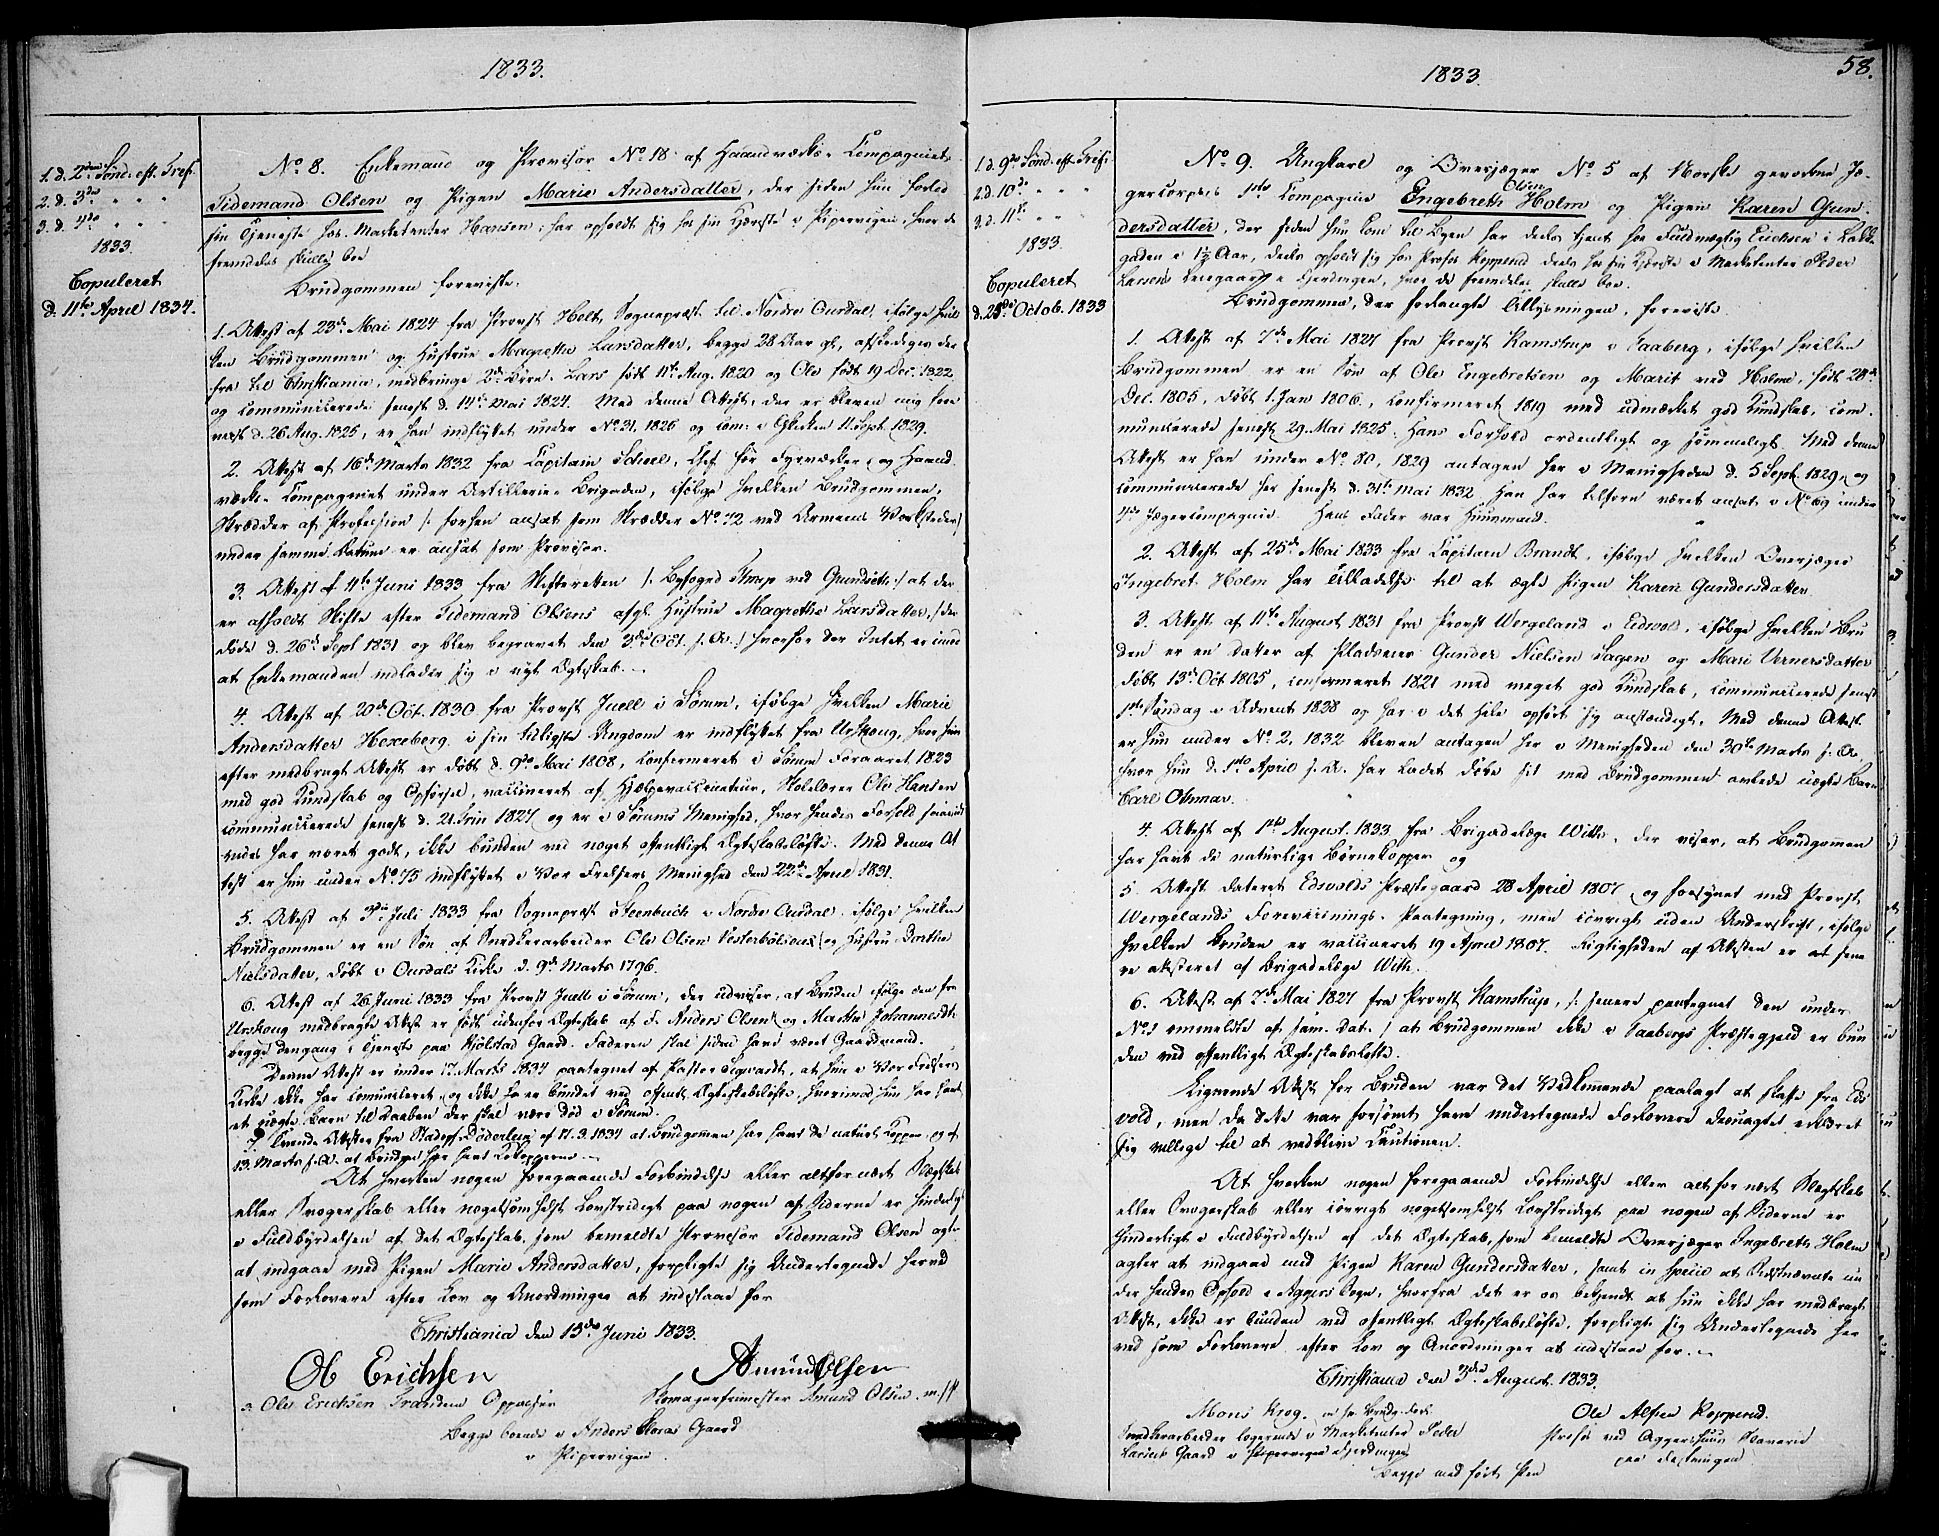 1833.
1.d. 2den Sønd. eft. Tref.
2.d. 3die " " "
3.d. 4de " " "
1833.
Copuleret
d. 11te April 1834.
No. 8. Enkemand og Provisor No. 18 af Haandværks-Compagniet
Tidemand Olsen og Pigen Marie Andersdatter, der siden hun forlod
sin Tjeneste hos Marketenter Hansen, har opholdt sig hos sin Kjæreste i Pipervigen, hvor de
fremdeles skulle boe
Brudgommen foreviste:
1. Attest af 23de Mai 1824 fra Provst Holt, Sognepræst til Nordre Ourdal, ifølge hvil
ken Brudgommen og Hustrue Magrethe Larsdatter, begge 28 Aar gl., afskediges der
fra til Christiania, medbringe 2de Børn: Lars født 11te Aug. 1820 og Ole født 19 Dec. 1822
og communicerede senest d. 14de Mai 1824. Med denne Attest, der er bleven mig fore
viist d. 26 Aug. 1825, er han indflyttet under No. 31, 1826 og com: i Kirken 11 Sept. 1829.
2. Attest af 16de Marts 1832 fra Capitain Scheel, Chef for Fyrværker- og Haand
værks-Compagniet under Artillerie-Brigaden, ifølge hvilken Brudgommen,
Skrædder af Profession /: forhen ansat som Skrædder No. 72 ved Armeens Værksteder/
under samme Datum er ansat som Provisor.
3. Attest af 4de Juni 1833 fra Skifteretten /: Byfoged :/ at der
er afholdt Skifte efter Tidemand Olsens afgl. Hustrue Magrethe Larsdatter, /: der
døde d. 26de Sept 1831 og blev begravet den 3die Oct. s. A. :/ hvorfor der Intet er imod
at Enkemanden indlader sig i nyt Ægteskab.
4. Attest af 20de Oct. 1830 fra Provst Juell i Sørum, ifølge hvilken Marie
Andersdatter Hexeberg i sin tidligste Ungdom er indflyttet fra Urskoug, hvor hun
efter medbragt Attest er døbt d. 9de Mai 1808, confirmeret i Sørum Foraaret 1823
med god Kundskab og Opførsel, vaccineret af Hjælpevaccinateur, Skolelærer Ole Hansen
communicerede senest d. 21 Trin 1827 og er i Sørums Menighed, hvor hendes Forhold
har været godt, ikke bunden ved noget offentligt Ægteskabsløfte. Med denne At
test er hun under No. 75 indflyttet i Vor Frelsers Menighed den 22de April 1831.
5. Attest af 3die Juli 1833 fra Sognepræst Steenbuch i Nordre Ourdal, ifølge hvilken
Brudgommen er en Søn af Snedkerarbeider Ole Olsen og Hustru Dorthe
Nielsdatter, døbt i Ourdals Kirke d. 9de Marts 1796.
6. Attest af 26 Juni 1833 fra Provst Juell i Sørum, der udviser, at Bruden ifølge den fra
Urskoug medbragte Attest er født udenfor Ægteskab af F. Anders Olsen og Marthe Johannesdt.
begge dengang i Tjeneste paa Kjølstad Gaard. Faderen skal siden have været Gaardmand.
Denne Attest er under 17 Marts 1834 paategnet af Pastor Sigvardt, at hun i Vor Frelsers
Kirke ikke har comuniceret og ikke er bundet ved offentl. Ægteskabsløfte, hvorimod hun har havt
et uægte Barn til Daaben der skal være død i Sørum.
7. Tvende Attester fra Stadsph. Döderlein af 17.3.1834 at Brudgommen har havt de naturl. Kopper, og af
13. Marts s. A. at Bruden har havt Kokopperne.
At hverken nogen foregaaende Forbindelse eller altfor nært Slægtskab
eller Svogerskab eller nogetsomhelst Lovstridigt paa nogen af Siderne er hinderligt
i Fuldbyrdelsen af det Ægteskab, som bemeldte Provisor Tidemand Olsen agter
at indgaae med Pigen Marie Andersdatter, forpligte sig Undertegnede herved
som Forlovere efter Lov og Anordninger at indestaae for
Christiania den 15de Juni 1833.
Ole Erichsen Amund Olsen
Ole Erichsen Opasser Skomagersvend Amund Olsen
Begge boende i Anders Gaard
i Pipervigen.
58.
1833.
1.d. 9de Sønd. eft. Tref.
2.d. 10de " " "
3.d. 11te " "
1833
Copuleret
d. 25de Octob. 1833
No. 9. Ungkarl og Overjæger No. 5 af Norske gevorbne Jæ-
gercorpses 1ste Compagnie Engebreth Olsen Holm og Pigen Karen Gun-
dersdatter, der siden hun kom til Byen har deels tjent hos Fuldmægtig Erichsen i
gaden i 1½ Aar, deels opholdt sig hos Profos Koppend deels hos sin Kjæreste i Marketenter Peder
Larsens i Hjerdingen, hvor de fremdeles skulle boe.
Brudgommen, der forlangte Lysningen, foreviste
1. Attest af 7de Mai 1827 fra Provst Ramstrup i Faaberg, ifølge hvilken
Brudgommen er en Søn af Ole Engebretsen og Marit ved Holme, født 28de
Dec. 1805, døbt 1. Jan 1806, confirmeret 1819 med udmærket god Kundskab, com
municerede senest 29. Mai 1825: hans Forhold ordentligt og sømmeligt. Med denne
Attest er han under No. 80, 1829 antagen her i Menigheden d. 5 Sept. 1829, og
communicerede her senest d. 31te Mai 1832. Han har tilforn været ansat i No. 69 under
4de Jægercompagnie. Hans Fader var Huusmand.
2. Attest af 25de Mai 1833 fra Capitain Brandt, ifølge hvilken Overjæger
Ingebret Holm har Tilladelse til at ægte Pigen Karen Gundersdatter
3. Attest af 11te August 1831 fra Provst Wergeland i Eidsvold, ifølge hvilken Bru
den er en Datter af Pladseier Gunder Nielsen Sagen og Mari Vernersdatter
døbt 13de Oct 1805, confirmeret 1821 med meget god Kundskab, communicerede senest
1ste Søndag i Advent 1828 og har i det Hele opført sig anstændigt. Med denne Attest
er hun under No. 2, 1832 bleven antagen her i Menigheden den 30te Marts s. A.,
hvor hun d. 1ste April s. A. har ladet døbe sit med Brudgommen avlede uægte Barn
Carl Othmar.
4. Attest af 1ste August 1833 fra Brigadelæge With, der viser, at Brudgommen
har havt de naturlige Børnekopper og
5. Attest dateret Edsvolds Præstegaard 28 April 1807 og forsynet med Provst
Wergelands Foreviisnings-Paategning, men iøvrigt uden Underskrift, ifølge
hvilken Bruden er vaccineret 19 April 1807. Rigtigheden af Attesten er at sene
re atesteret af Brigadelæge With.
6. Attest af 7de Mai 1827 fra Provst Ramstrup, /: senere paategnet den under
No. 1 ommeldte af sam. Dat. / at Brudgommen ikke i Faabergs Præstegjeld er bun
den ved offentligt Ægteskabsløfte.
Lignende Attest for Bruden var det Vedkommende paalagt at skaffe fra Eds
vold, men da dette var forsømt have undertegnede Forlovere desuagtet erklæret
sig villige til at vedblive Cautionen.
At hverken nogen foregaaende Forbindelse eller altfor nært Slægtskab
eller Svogerskab eller iøvrigt nogetsomhelst Lovstridigt paa nogen af Siderne er
hinderligt i Fuldbyrdelsen af det Ægteskab, som bemeldte Overjæger Ingebreth Holm
agter at indgaae med Pigen Karen Gundersdatter, samt in specie at Sidstnævnte un
der hendes Ophold i Aggers Sogn, hvorfra det er os bekjendt at hun ikke har medbragt
Attest, ikke er bunden ved offentligt Ægteskabsløfte, forpligte sig Undertegnede her
ved som Forlovere efter Lov og Anordninger at indestaae for.
Christiania den 3die August 1833.
Mons Krog Ole Koppend.
logerende i Marketenter Peder Profos ved Aggershuus Slaverie
Larsens Gaard i Hjerdingen paa Festningen
Begge med ført Pen